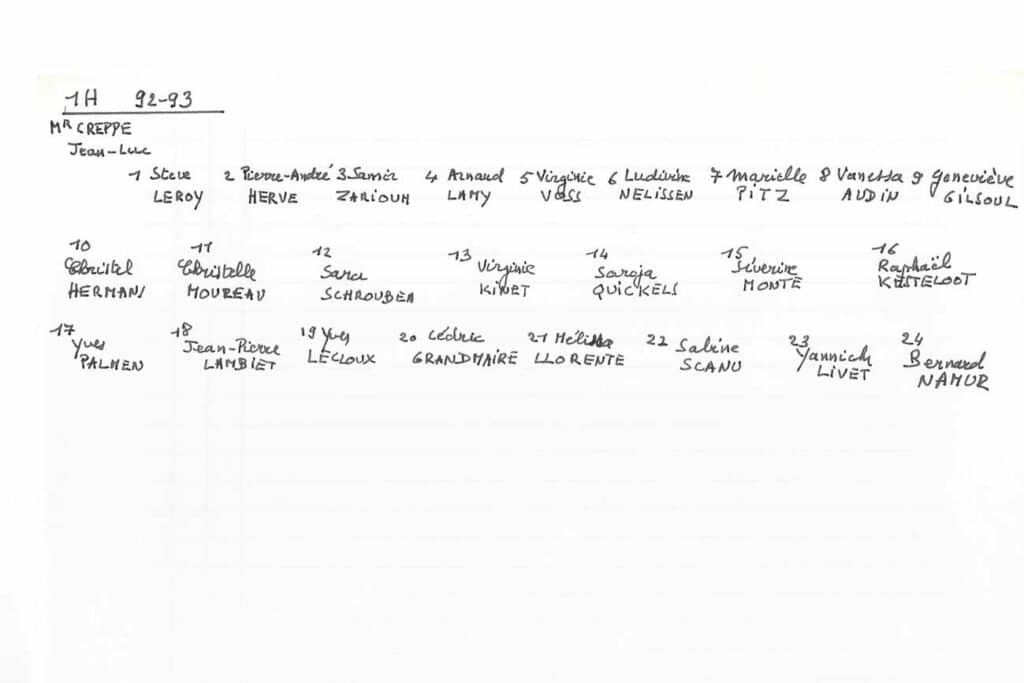 1H 92-93
Mr CREPPE
Jean-Luc
1 Steve 2 Pierre-André 3 Samir 4 Arnaud 5 Virginie 6 Ludivine 7 Marielle 8 Vanessa 9 Geneviève
LEROY HERVE ZARIOUH LAMY VOSS NELISSEN PITZ AUDIN GILSOUL
10 11 12 13 14 15 16
Christel Christelle Sara Virginie Saroja Séverine Raphaël
HERMANS MOUREAU SCHROUBEN KINET QUICKELS MONTE KESTELOOT
17 18 19 Yves 20 Cédric 21 Mélissa 22 Sabine 23 24
Yves Jean-Pierre LECLOUX GRANDMAIRE LLORENTE SCANU Yannick Bernard
PALMEN LAMBIET LIVET NAMUR